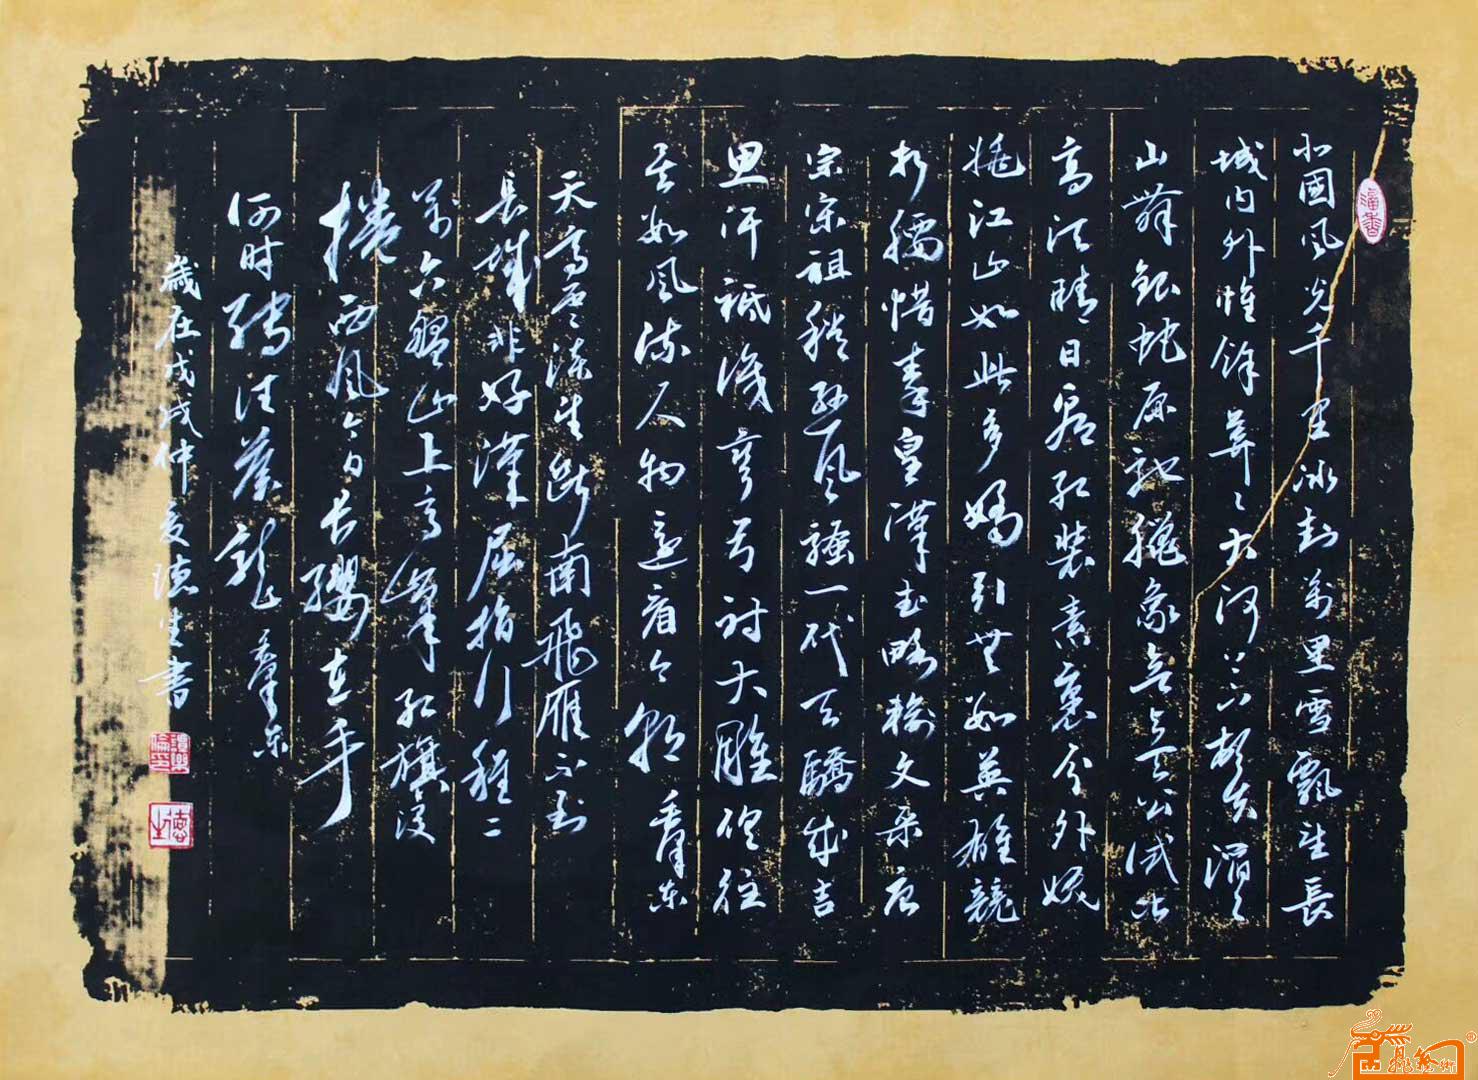 北國風光千里冰封萬里雪飄望長
城内外惟餘莽々大河上下頓失滔々
山舞銀蛇原馳臘象欲与天公試比
高須晴日看紅裝素裹分外妖
嬈江山如此多嬌引無數英雄競
折腰惜秦皇漢武略輸文采唐
宗宋祖稍遜風騷一代天驕成吉
思汗祗識彎弓射大雕俱往
矣數風流人物還看今朝 澤东
天高雲淡望斷南飛雁不到
長城非好漢屈指行程二
萬六盤山上高峰紅旗漫
捲西風今日長纓在手
何时縛住蒼龍 澤东
歲在戊戌仲夏德生書
德生